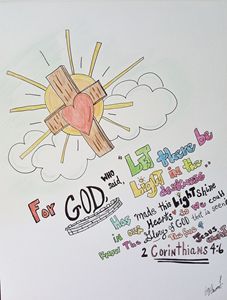 For GOD, WHO said, "LET there be
Light in the
darkness"
Has made this Light shine
in our Hearts So We could
Know The Glory of GOD that is seen
in The face of
Jesus
Christ
2 Corinthians 4:6